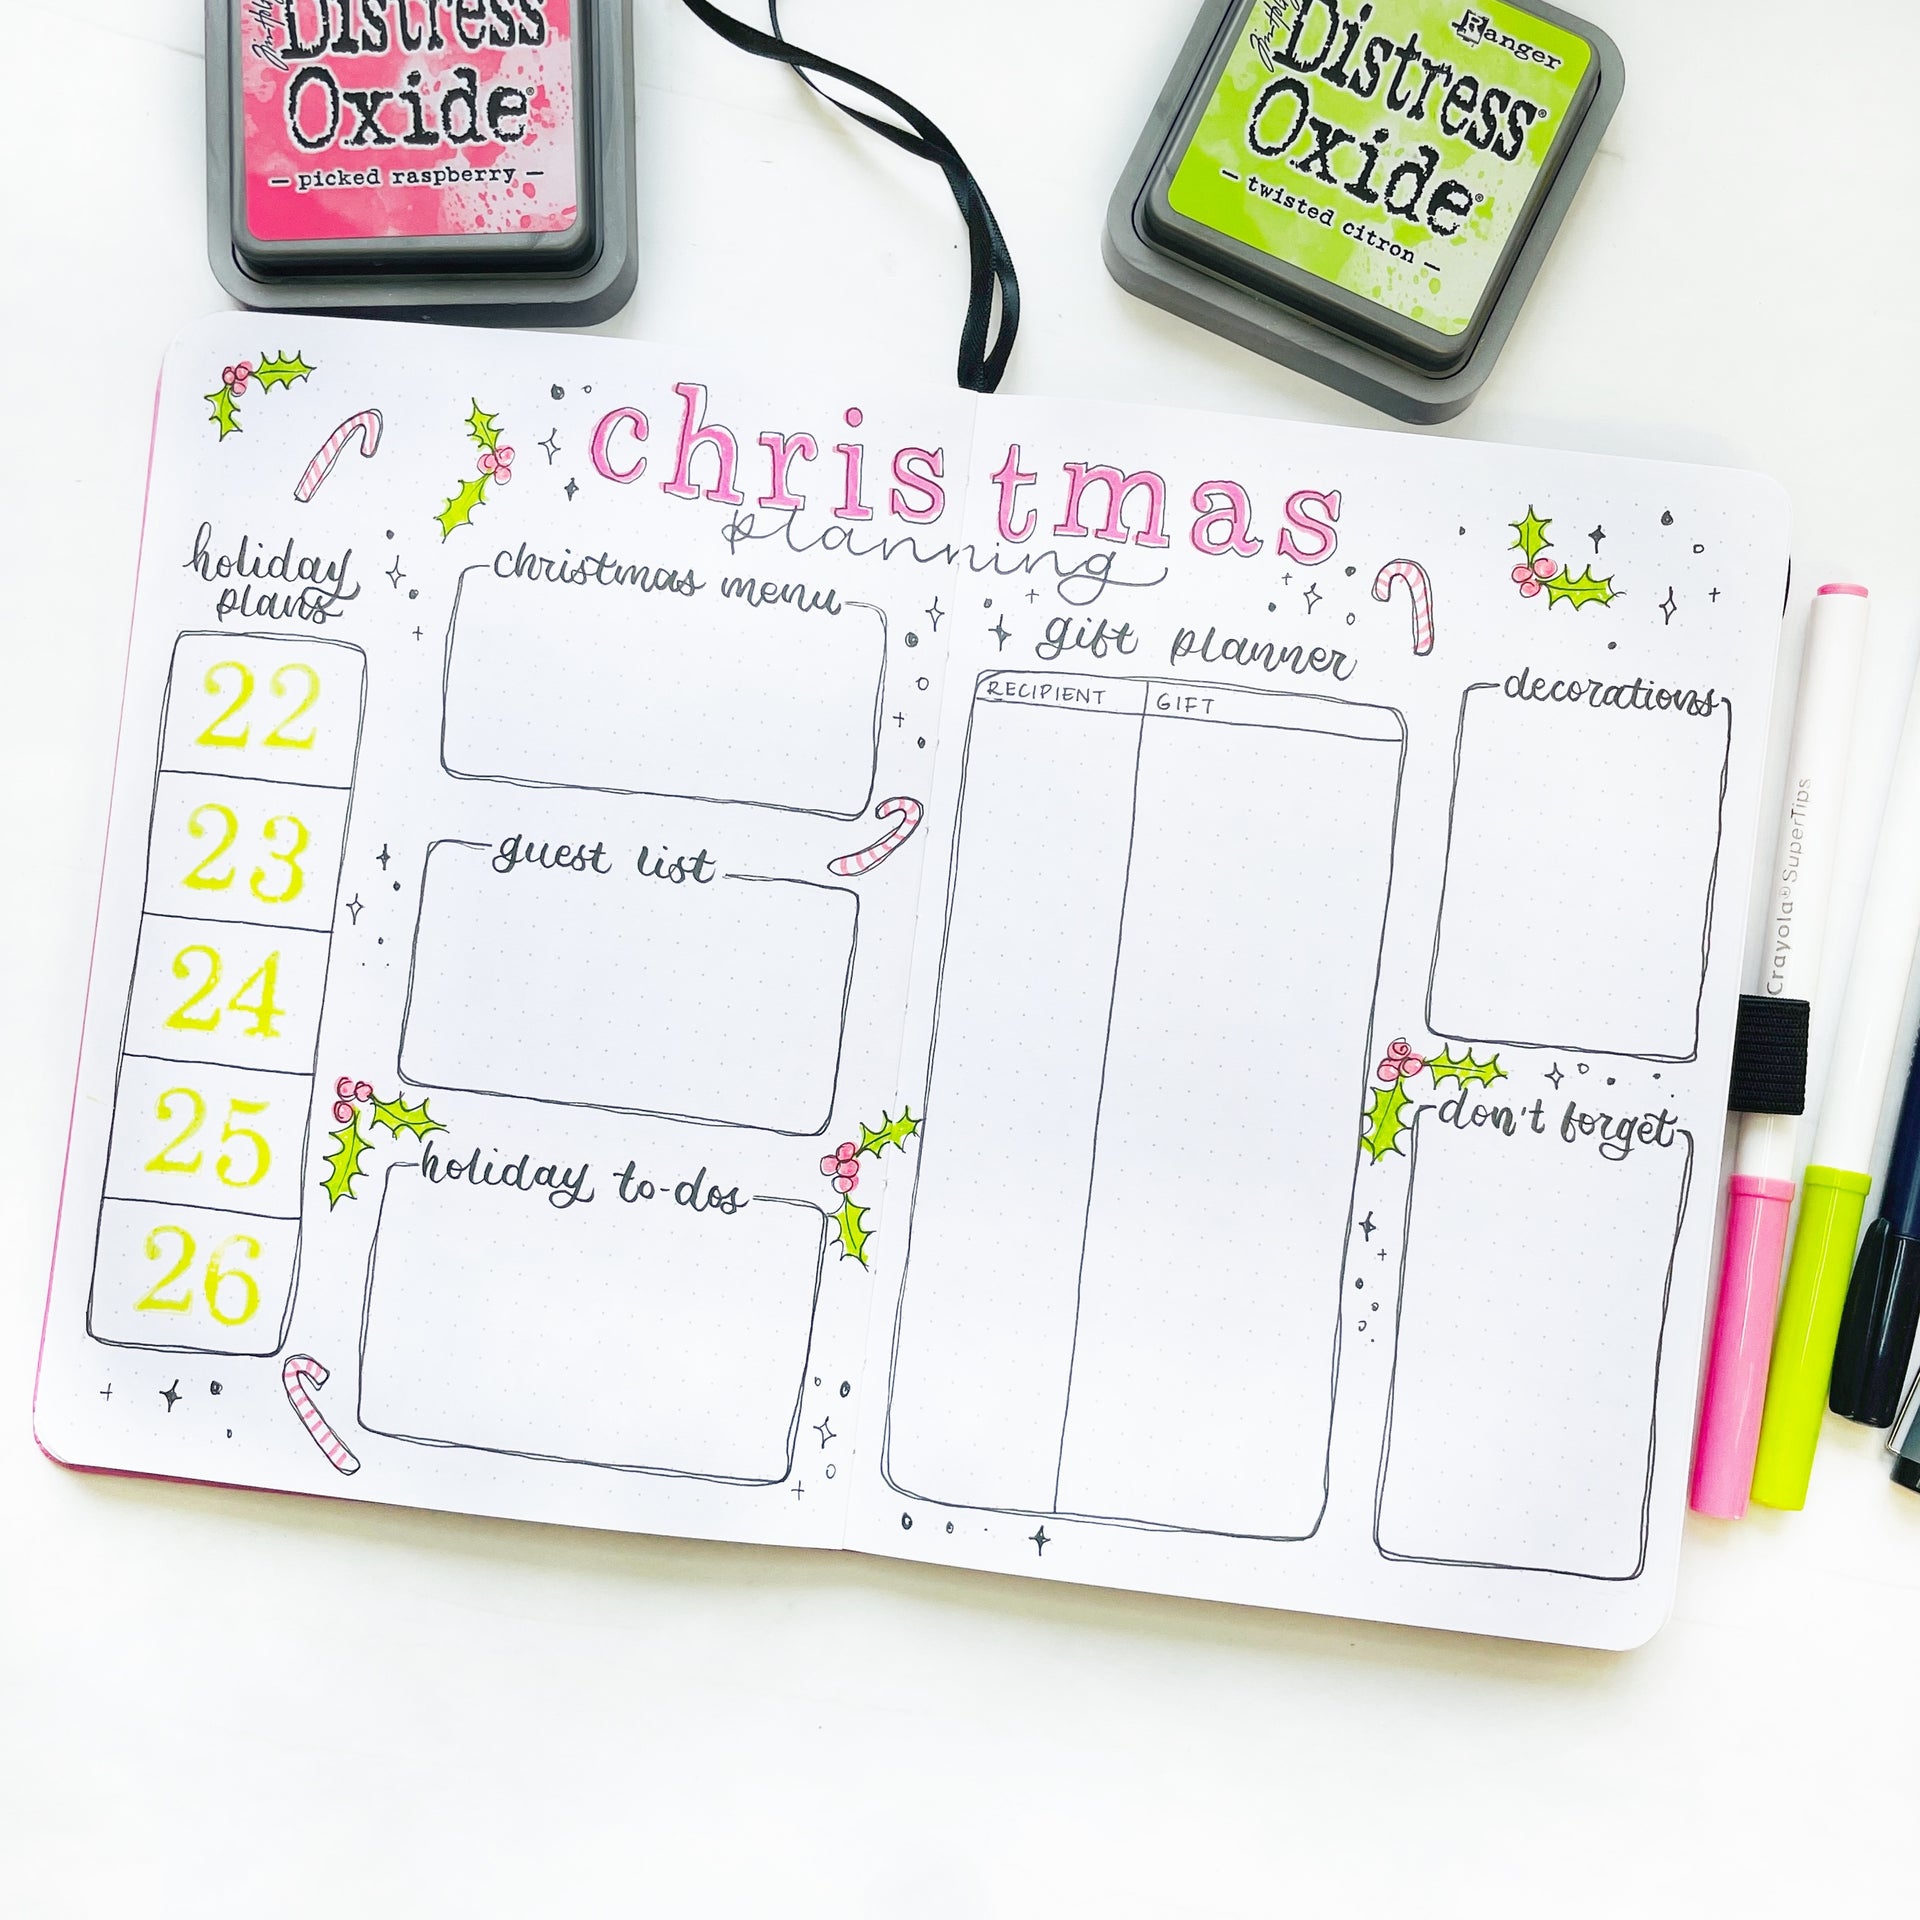 Distress
Oxide®
— picked raspberry —
Ranger
Distress®
Oxide®
— twisted citron —
christmas
planning
holiday
plans
22
23
24
25
26
christmas menu
guest list
holiday to-dos
gift planner
RECIPIENT GIFT
decorations
don't forget
Crayola® SuperTips